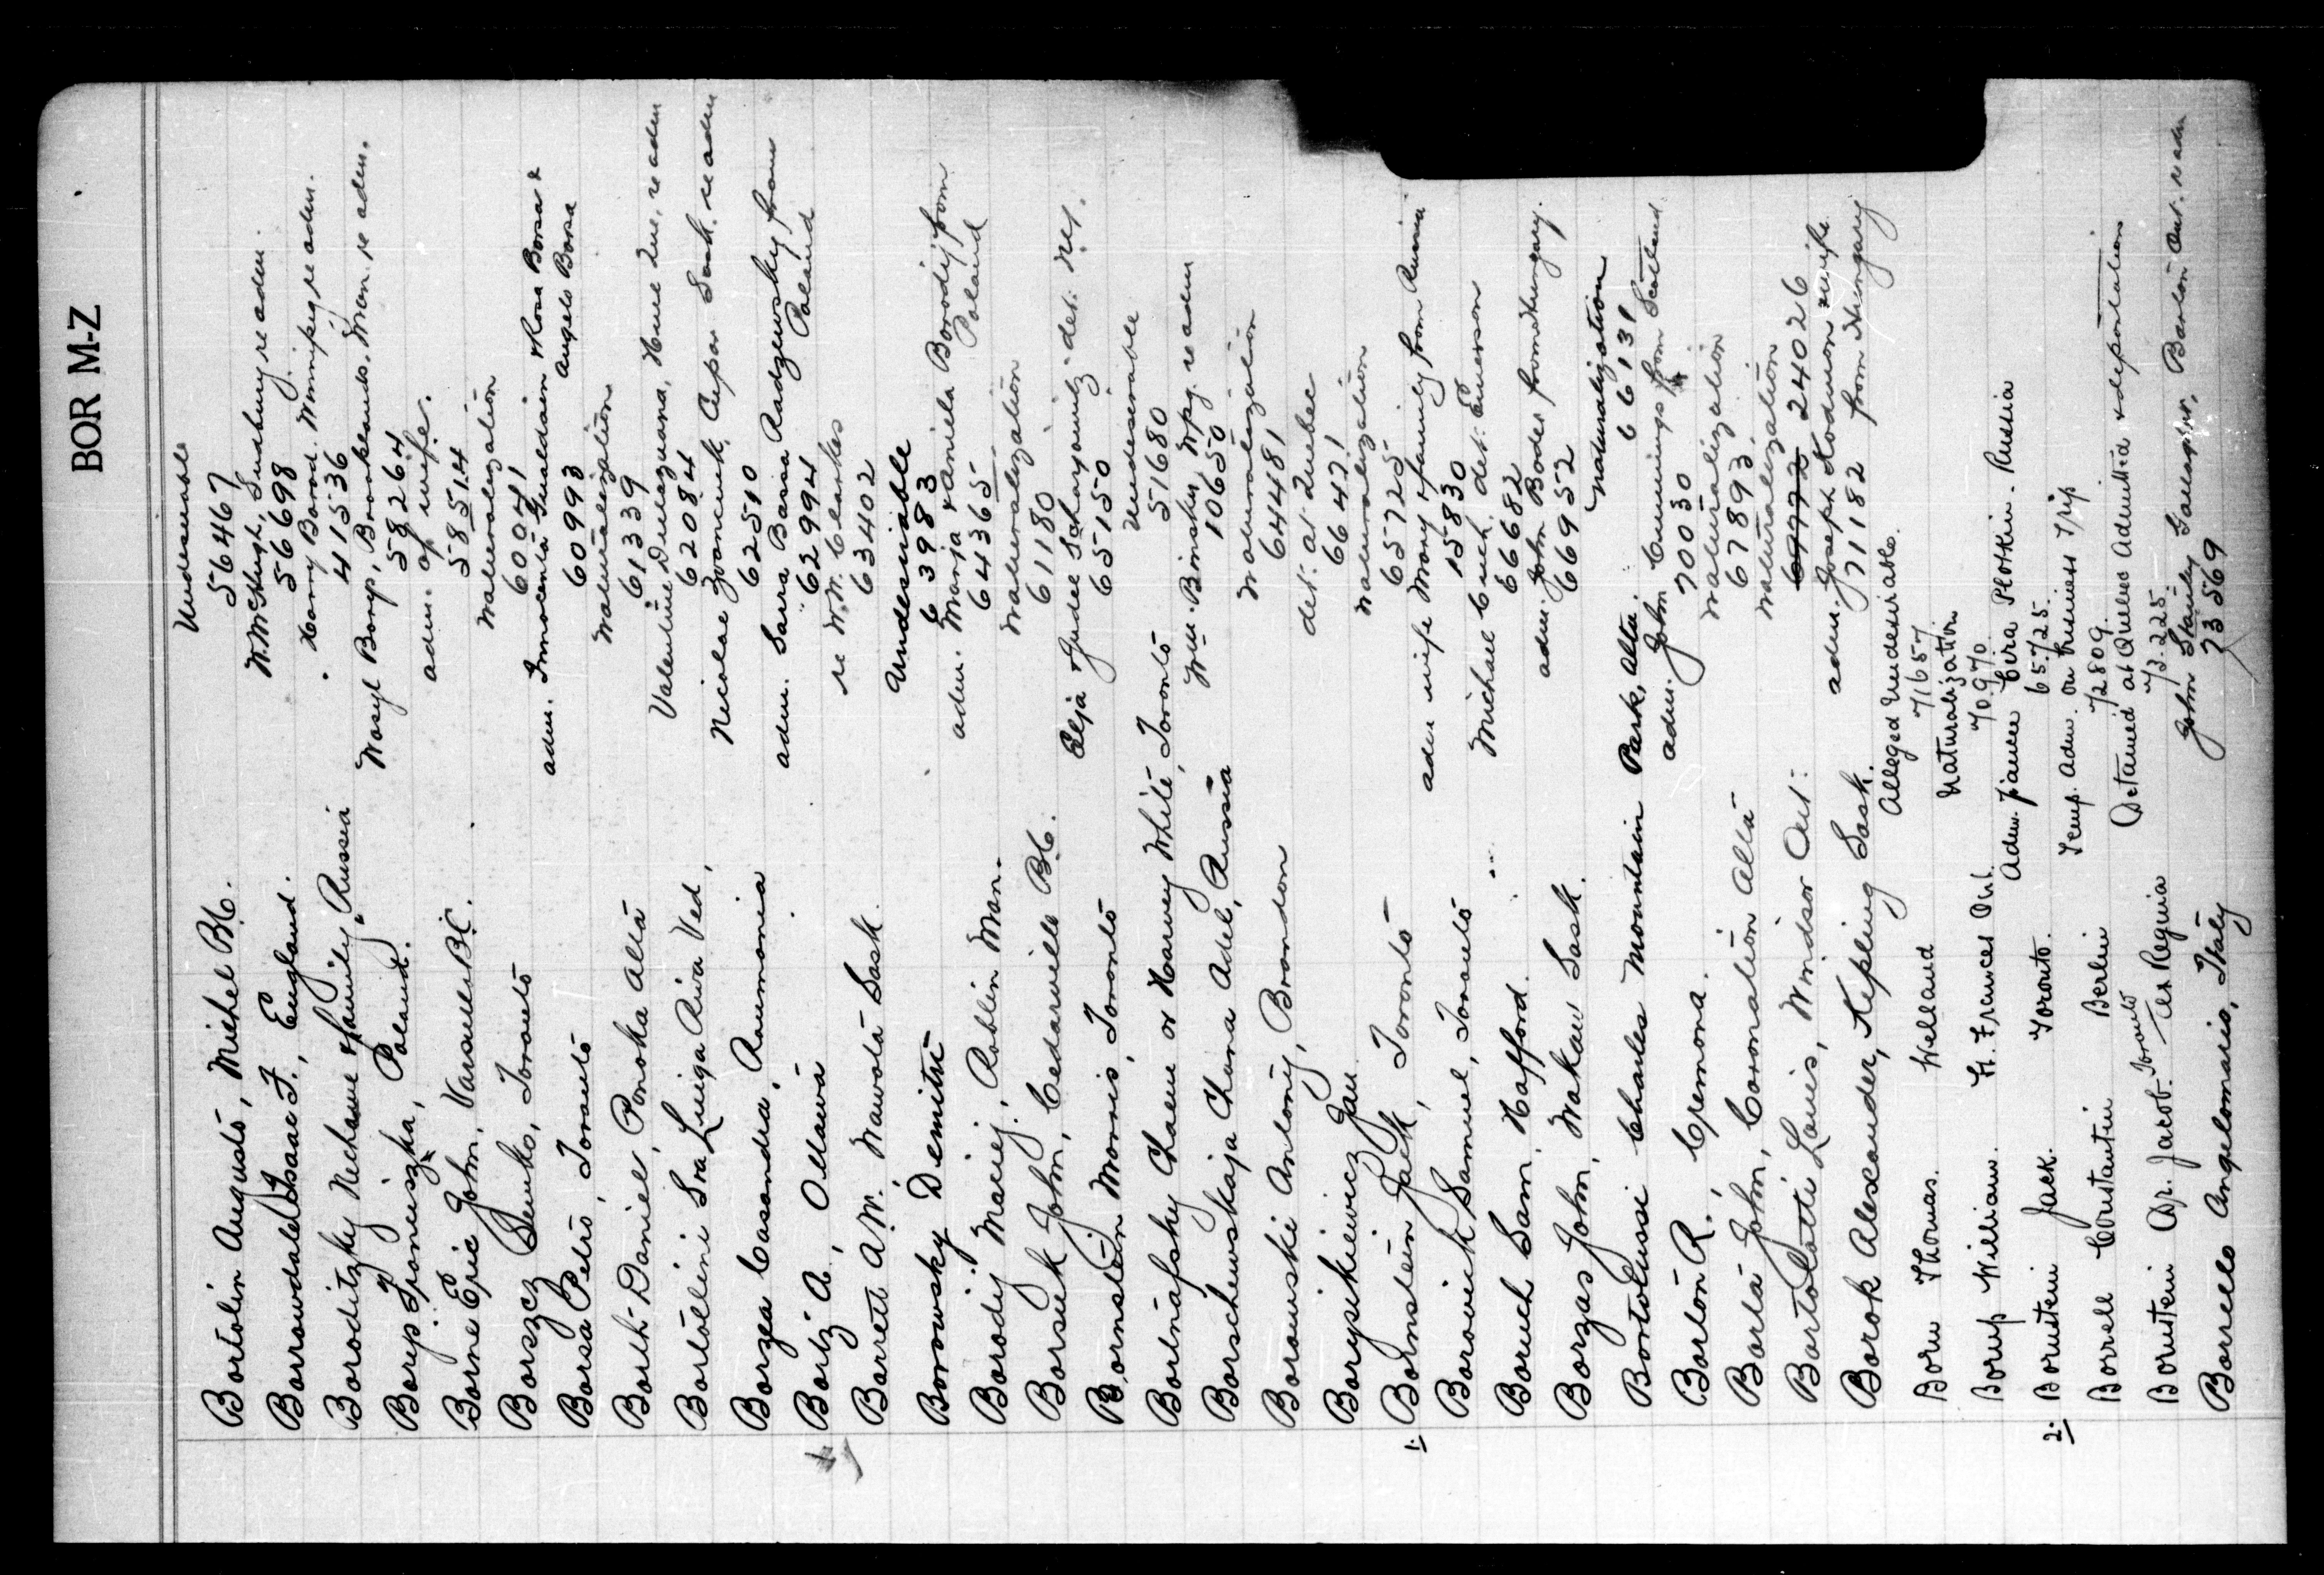 BOR M-Z
Undesirable
Bortolin Augusto, Michel B.C. 56467
W. McHugh, Sudbury re adm.
Borrowdale Isaac F., England. 56698
Harry Borod. Winnipeg re adm.
Boroditzky Nechame & family, Russia 41536
Wasyl Borys, Brooklands, Man. re adm.
Borys Franciszka, Poland. 58264
adm. of wife.
Borne Eric John, B.C. 58514
Naturalization
Borszcz Senko, Toronto 60041
adm. Innocenta Gualdain & Rosa Borsa &
Angelo Borsa
Borsa Petro, Toronto 60993
Naturalization
Borth Daniel, Ponoka Alta 61339
Valentine Dulazuana, Hune Que. re adm
Bortollini Sra Luiga Riva Ved, 62084
Nicolae Cupar Sask. re adm
Borzea Casandra, Roumania 62510
adm. Sara Basia Radzewsky from
Poland
Bortz A., Ottawa 62994
re W.N. Clarkes
Barrett A.W. Wawota Sask. 63402
Undesirable
Borowsky Demitri 63983
adm. Marja & Aniela Borodij from
Poland
Borodij Maciej, Roblin Man. 64365
Naturalization
Borsuk John, Cedarville B.C. 61180
Elja & Judee det. N.Y.
Bornstein Morris, Toronto 65150
Undesirable
Bortnafsky Chaem or Harvey White, Toronto 51680
Wm. Brinsky, Wpg. re adm
Borschewskaja Chana Adel, Russia 10650
Naturalization
Borowski Antony, Brandon 64481
det. at Quebec
Borysikiewicz Jan 66421
Naturalization
1. Bornstein Jack, Toronto 65725
adm wife Mary & family from Russia
Borovick Samuel, Toronto 15830
Michael Cuch. det. Emerson
Boruch Sam, Hafford. 66682
adm. John Bodes from Hungary.
Borzas John, Wakaw Sask. 66952
Naturalization
Bortolussi Charles Mountain Park, Alta. 66131
adm. John Cummings from Scotland
Borton R., Cremona. 70030
Naturalization
Borta John, Coronation Alta 67893
Naturalization
Bortolotti Louis, Windsor Ont. 69772 24026
adm. Joseph Hodmon & wife
from Hungary
Borok Alexander, Kipling Sask. 71182
Alleged Undesirable.
Born Thomas. Welland 71657
Naturalization
Borup William. Ft. Frances Ont. 70970
Adm. fiancee Cira Plotkin. Russia
2. Bornstein Jack. Toronto. 65725
Temp. adm. on business trip
Borrell Constantin Berlin 72809
Detained at Quebec Admitted & deportation
Bornstein Dr. Jacob. Toronto ex Regina 73225
John Stanley Gallagher, Barton Ont. re adm
Borrello Angelomario, Italy 73569